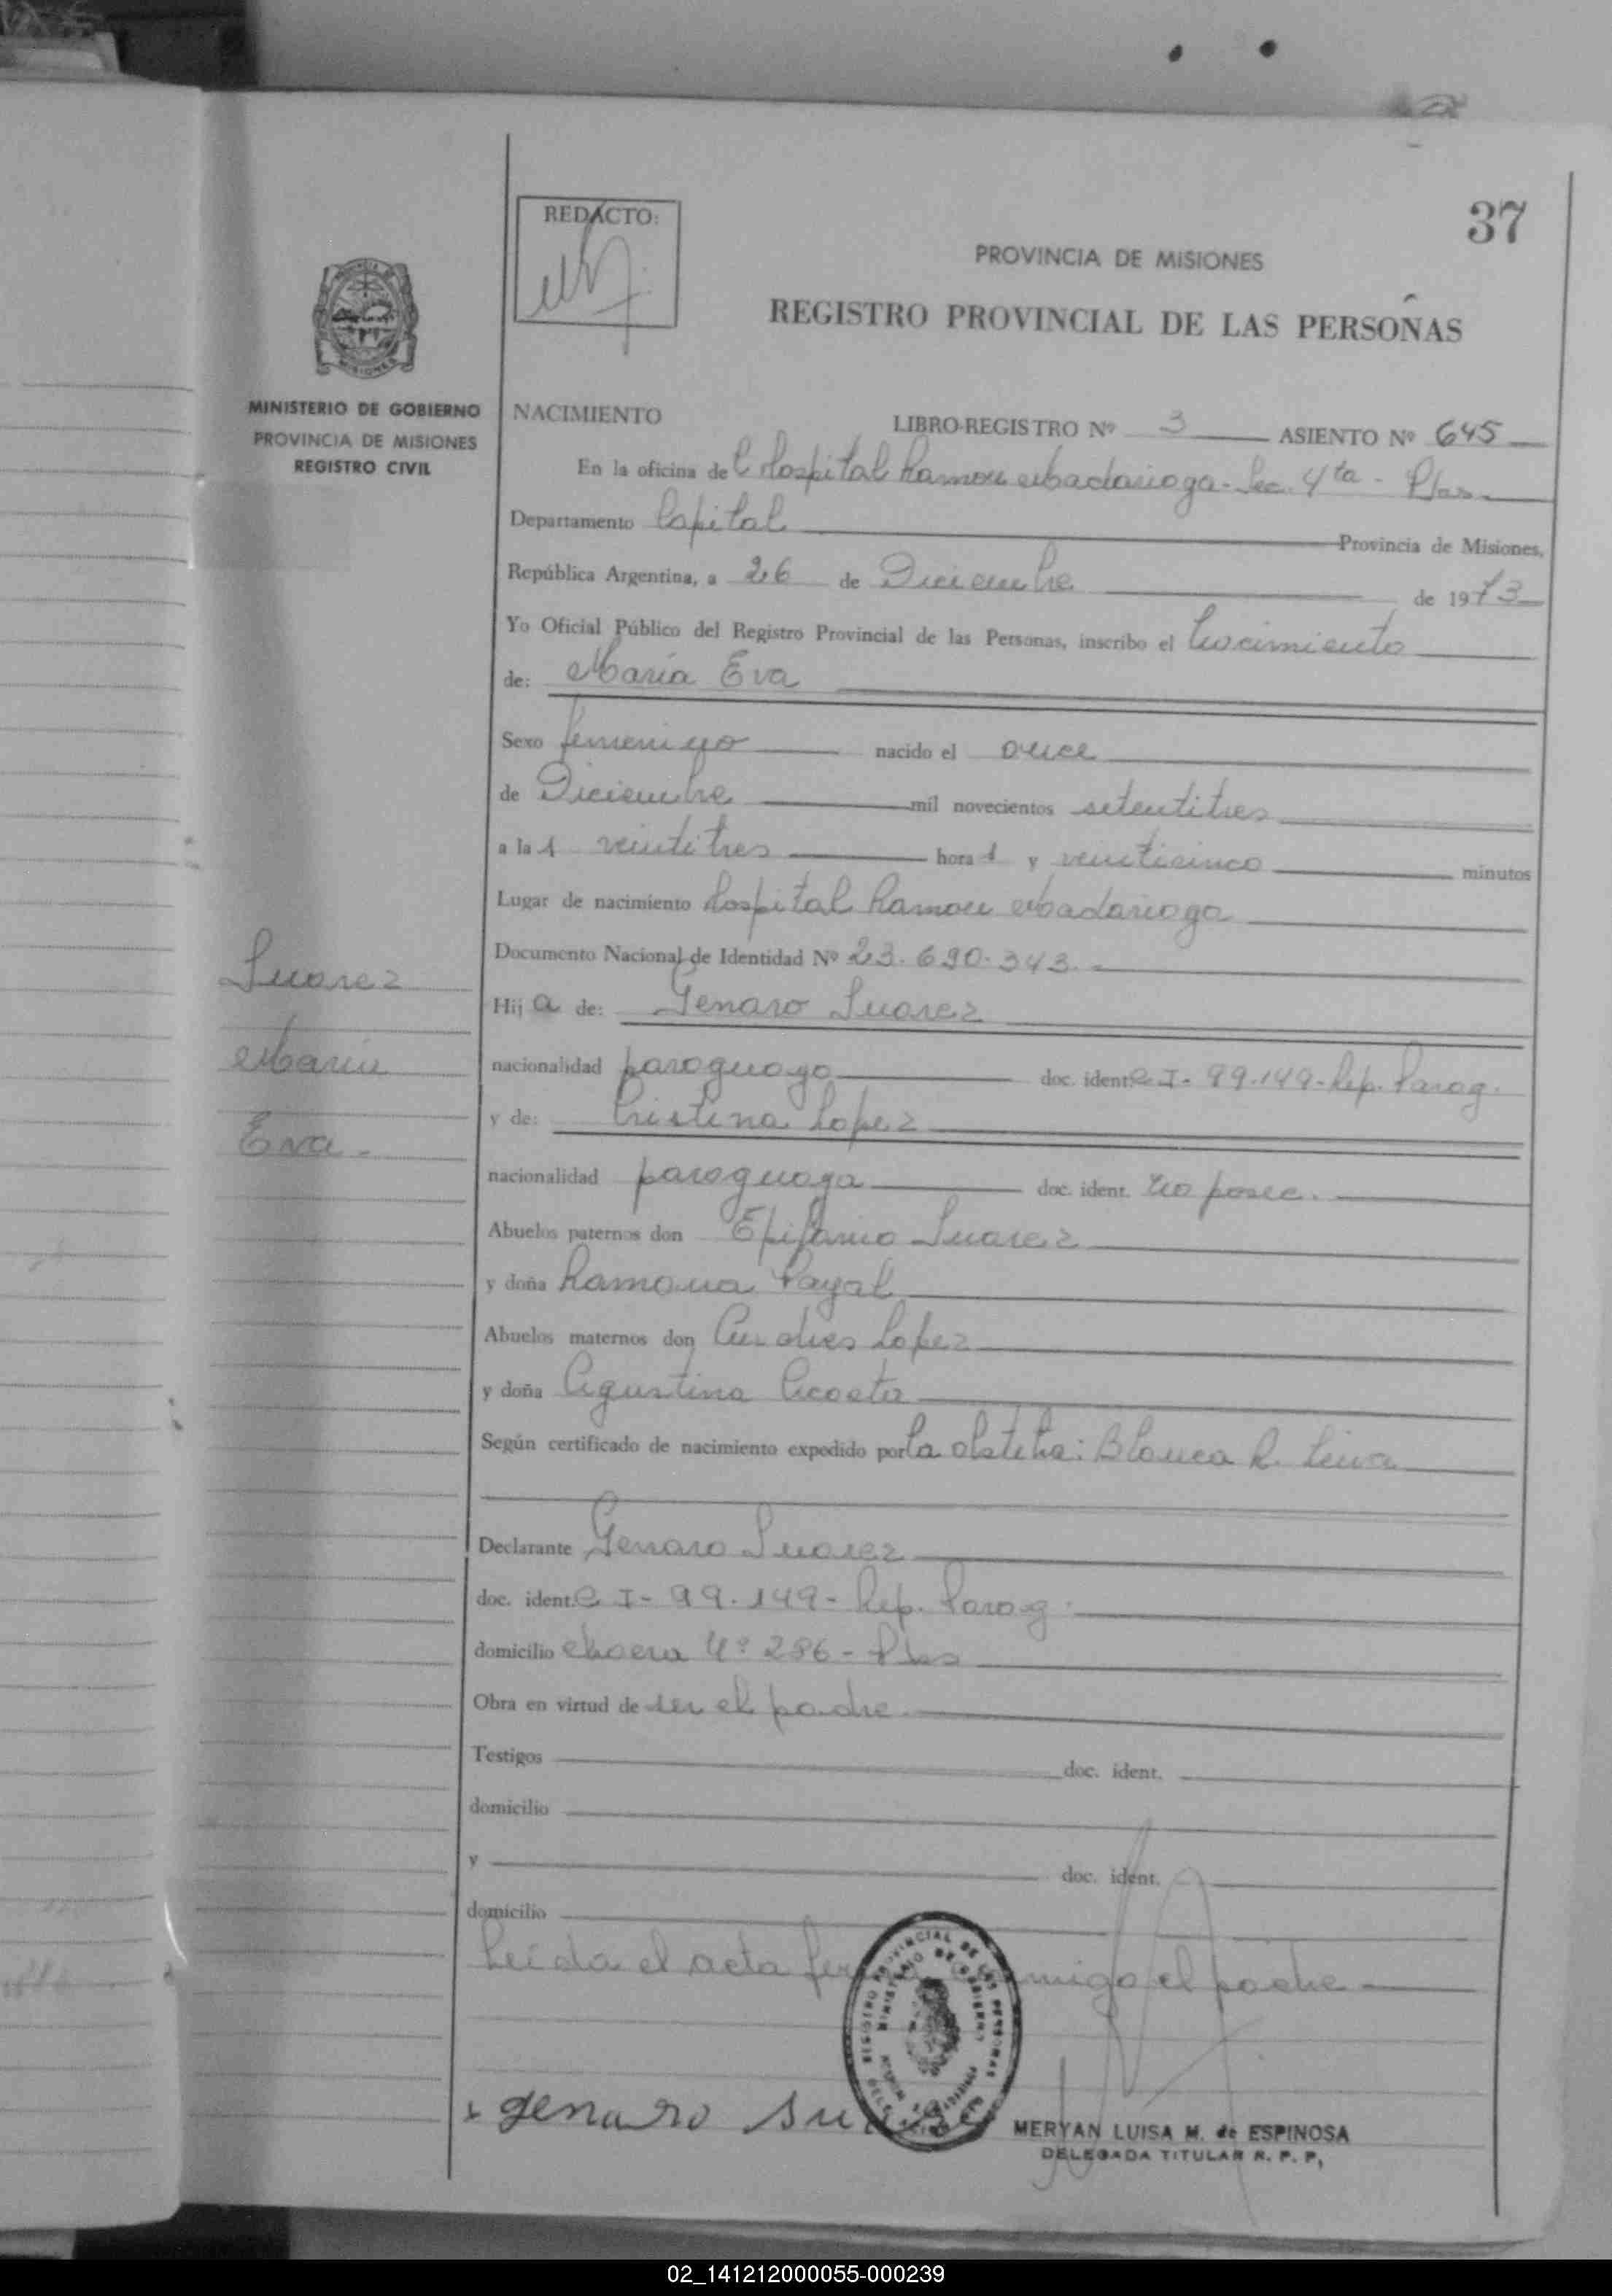 37
REDACTO:
PROVINCIA DE MISIONES
REGISTRO PROVINCIAL DE LAS PERSONAS
MINISTERIO DE GOBIERNO
PROVINCIA DE MISIONES
REGISTRO CIVIL
NACIMIENTO
LIBRO-REGISTRO Nº 3 ASIENTO Nº 645
En la oficina del Hospital Ramon Madariaga - Sec. 4ta - Pdas
Departamento Capital Provincia de Misiones,
República Argentina, a 26 de Diciembre de 1973
Yo Oficial Público del Registro Provincial de las Personas, inscribo el Nacimiento
de: María Eva
Sexo femenino nacido el once
de Diciembre mil novecientos setentitres
a las veintitres horas y veinticinco minutos
Lugar de nacimiento Hospital Ramon Madariaga
Documento Nacional de Identidad Nº 23.690.343.-
Hija de: Genaro Suarez
nacionalidad paraguayo doc. ident. C I- 99.149- Rep. Parag.
y de: Cristina Lopez
nacionalidad paraguaya doc. ident. no posee.
Abuelos paternos don Epifanio Suarez
y doña Ramona
Abuelos maternos don Andres Lopez
y doña Agustina Acosta
Según certificado de nacimiento expedido por la obstetra: Blanca R. Leiva
Declarante Genaro Suarez
doc. ident. C I- 99.149- Rep. Parag.
domicilio chacra Nº 286 - Pdas
Obra en virtud de ser el padre.
Testigos doc. ident.
domicilio
y doc. ident.
domicilio
Leída el acta conmigo el padre
Suarez
Maria
Eva.-
REGISTRO PROVINCIAL DE LAS PERSONAS
MINISTERIO DE GOBIERNO
genaro suarez
MERYAN LUISA M. de ESPINOSA
DELEGADA TITULAR R. P. P.
02_141212000055-000239